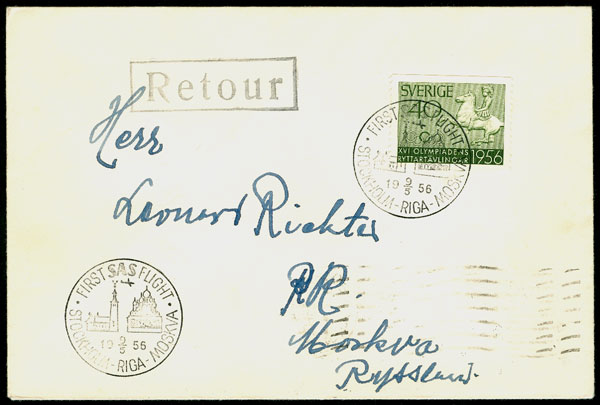 Retour
SVERIGE
40
XVI OLYMPIADENS
RYTTARTÄVLINGAR 1956
· FIRST SAS FLIGHT ·
19 9/5 56
STOCKHOLM-RIGA-MOSKVA
Herr
Leonard Richter
PR
Moskva
Ryssland.
· FIRST SAS FLIGHT ·
19 9/5 56
STOCKHOLM-RIGA-MOSKVA